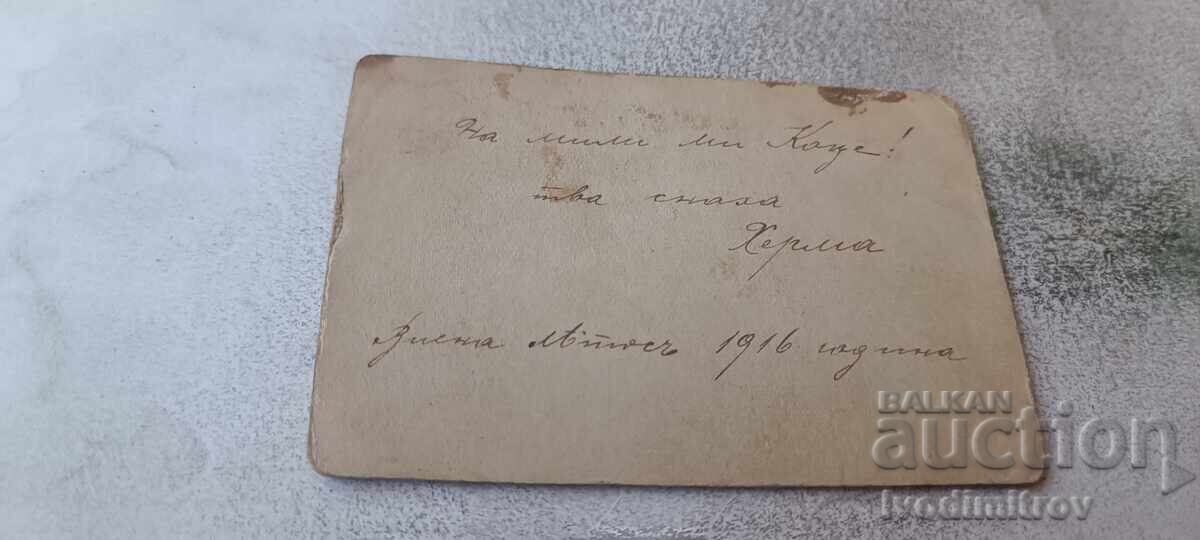 На мили ми Коце!
тва снаха
Херма
Виена лѣтосъ 1916 година
BALKAN
auction
Ivodimitrov